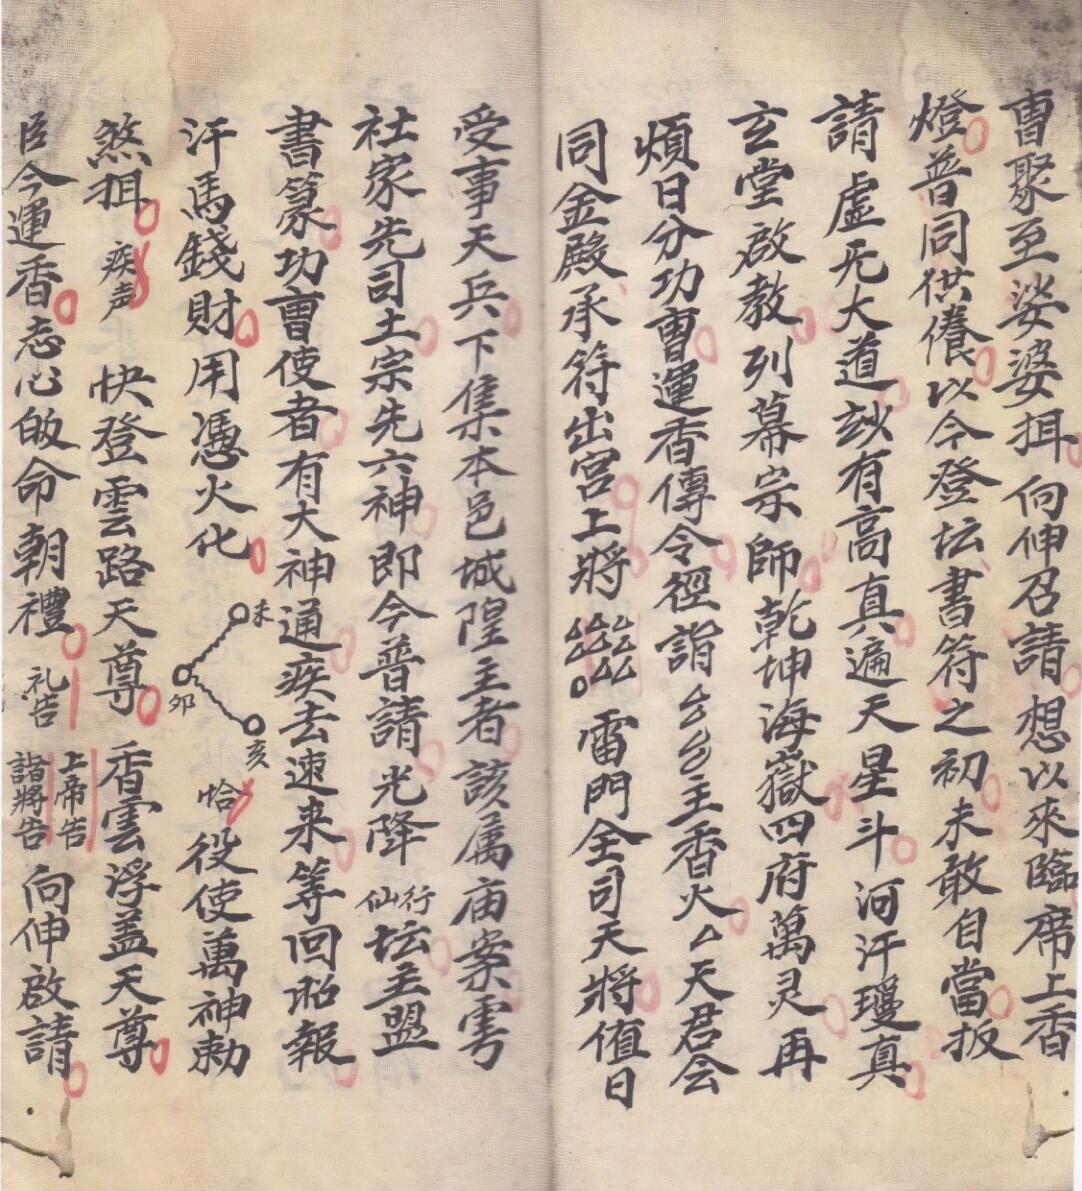 曹聚至娑婆抇向伸召請想以來臨席上香
燈普同供養以今登坛書符之初未敢自當扳
請虛无大道玅有高真遍天星斗河汗瓊真
玄堂啟教列幕宗師乾坤海嶽四府萬灵再
煩日分功曹運香傳令徑詣厶厶厶厶主香火厶天君会
同金殿承符出宫上將 雷門全司天將值日
受事天兵下集本邑城隍主者該属庙案雩
社家先司土宗先六神即今普請光降行仙坛主盟
書篆功曹使者有大神通疾去速来等回昭報
汗馬錢財用憑火化
未
卯
亥
恰
役使萬神勅
煞抇
疾声
快登雲路天尊香雲浮盖天尊
臣今運香志心皈命朝禮
礼告
上帝告
諸將告
向伸啟請